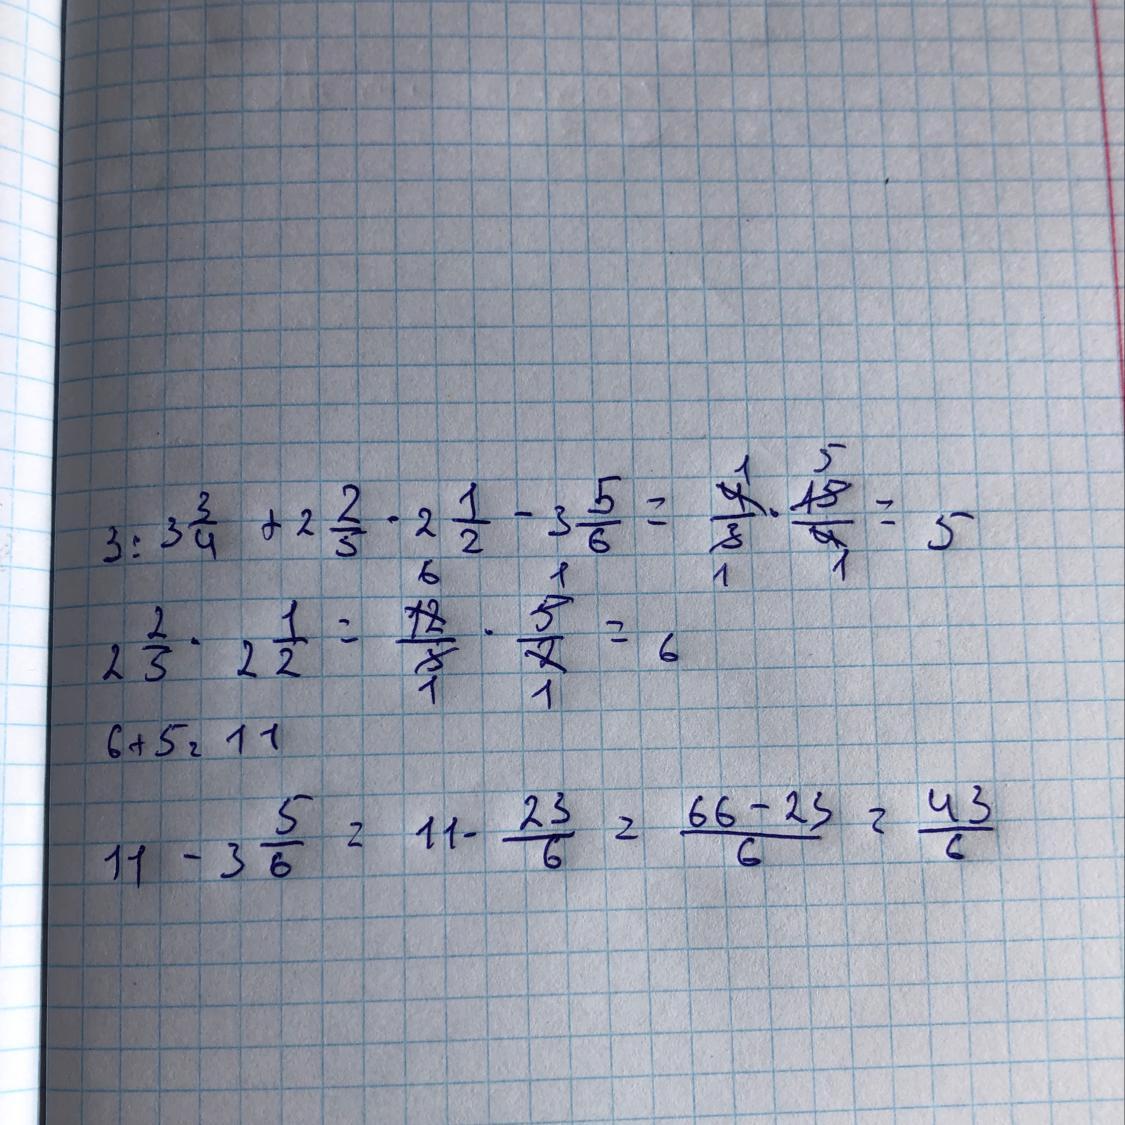 3 : 3 3/4 + 2 2/5 · 2 1/2 - 3 5/6 = 4/3 · 15/4 = 5
2 2/5 · 2 1/2 = 12/5 · 5/2 = 6
6+5= 11
11 - 3 5/6 = 11- 23/6 = 66-23/6 = 43/6